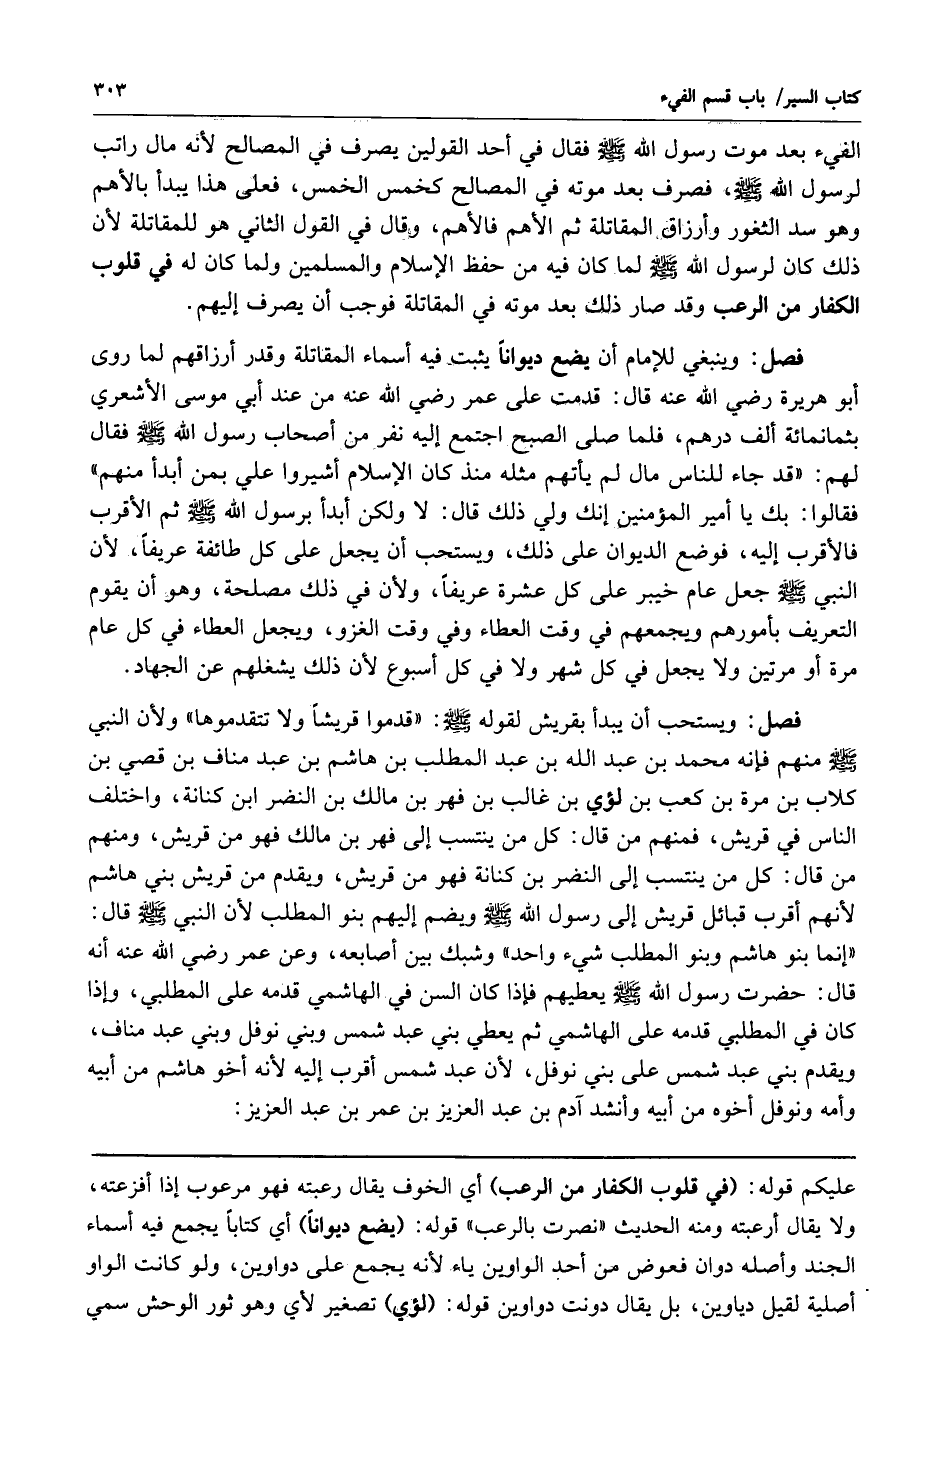 كتاب السير/ باب قسم الفيء ٣٠٣
الفيء بعد موت رسول الله ﷺ فقال في أحد القولين يصرف في المصالح لأنه مال راتب
لرسول الله ﷺ، فصرف بعد موته في المصالح كخمس الخمس، فعلى هذا يبدأ بالأهم
وهو سد الثغور وأرزاق المقاتلة ثم الأهم فالأهم، وقال في القول الثاني هو للمقاتلة لأن
ذلك كان لرسول الله ﷺ لما كان فيه من حفظ الإسلام والمسلمين ولما كان له في قلوب
الكفار من الرعب وقد صار ذلك بعد موته في المقاتلة فوجب أن يصرف إليهم.
فصل: وينبغي للإمام أن يضع ديواناً يثبت فيه أسماء المقاتلة وقدر أرزاقهم لما روى
أبو هريرة رضي الله عنه قال: قدمت على عمر رضي الله عنه من عند أبي موسى الأشعري
بثمانمائة ألف درهم، فلما صلى الصبح اجتمع إليه نفر من أصحاب رسول الله ﷺ فقال
لهم: «قد جاء للناس مال لم يأتهم مثله منذ كان الإسلام أشيروا علي بمن أبدأ منهم»
فقالوا: بك يا أمير المؤمنين إنك ولي ذلك قال: لا ولكن أبدأ برسول الله ﷺ ثم الأقرب
فالأقرب إليه، فوضع الديوان على ذلك، ويستحب أن يجعل على كل طائفة عريفاً، لأن
النبي ﷺ جعل عام خيبر على كل عشرة عريفاً، ولأن في ذلك مصلحة، وهو أن يقوم
التعريف بأمورهم ويجمعهم في وقت العطاء وفي وقت الغزو، ويجعل العطاء في كل عام
مرة أو مرتين ولا يجعل في كل شهر ولا في كل أسبوع لأن ذلك يشغلهم عن الجهاد.
فصل: ويستحب أن يبدأ بقريش لقوله ﷺ: «قدموا قريشاً ولا تتقدموها» ولأن النبي
ﷺ منهم فإنه محمد بن عبد الله بن عبد المطلب بن هاشم بن عبد مناف بن قصي بن
كلاب بن مرة بن كعب بن لؤي بن غالب بن فهر بن مالك بن النضر ابن كنانة، واختلف
الناس في قريش، فمنهم من قال: كل من ينتسب إلى فهر بن مالك فهو من قريش، ومنهم
من قال: كل من ينتسب إلى النضر بن كنانة فهو من قريش، ويقدم من قريش بني هاشم
لأنهم أقرب قبائل قريش إلى رسول الله ﷺ ويضم إليهم بنو المطلب لأن النبي ﷺ قال:
«إنما بنو هاشم وبنو المطلب شيء واحد» وشبك بين أصابعه، وعن عمر رضي الله عنه أنه
قال: حضرت رسول الله ﷺ يعطيهم فإذا كان السن في الهاشمي قدمه على المطلبي، وإذا
كان في المطلبي قدمه على الهاشمي ثم يعطي بني عبد شمس وبني نوفل وبني عبد مناف،
ويقدم بني عبد شمس على بني نوفل، لأن عبد شمس أقرب إليه لأنه أخو هاشم من أبيه
وأمه ونوفل أخوه من أبيه وأنشد آدم بن عبد العزيز بن عمر بن عبد العزيز:
عليكم قوله: (في قلوب الكفار من الرعب) أي الخوف يقال رعبته فهو مرعوب إذا أفزعته،
ولا يقال أرعبته ومنه الحديث «نصرت بالرعب» قوله: (يضع ديواناً) أي كتاباً يجمع فيه أسماء
الجند وأصله دوان فعوض من أحد الواوين ياء لأنه يجمع على دواوين، ولو كانت الواو
أصلية لقيل دياوين، بل يقال دونت دواوين قوله: (لؤي) تصغير لأي وهو ثور الوحش سمي